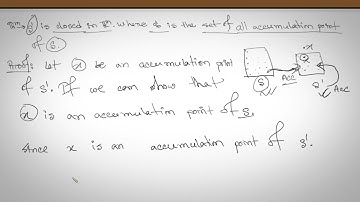 S' is closed in ℝⁿ. where S' is the set of all accumulation point
of S.
Proof: Let x be an accumulation point
of S'. If we can show that
x is an accumulation point of S.
Since x is an accumulation point of S'.
S
Acc
S
x
Acc
S'